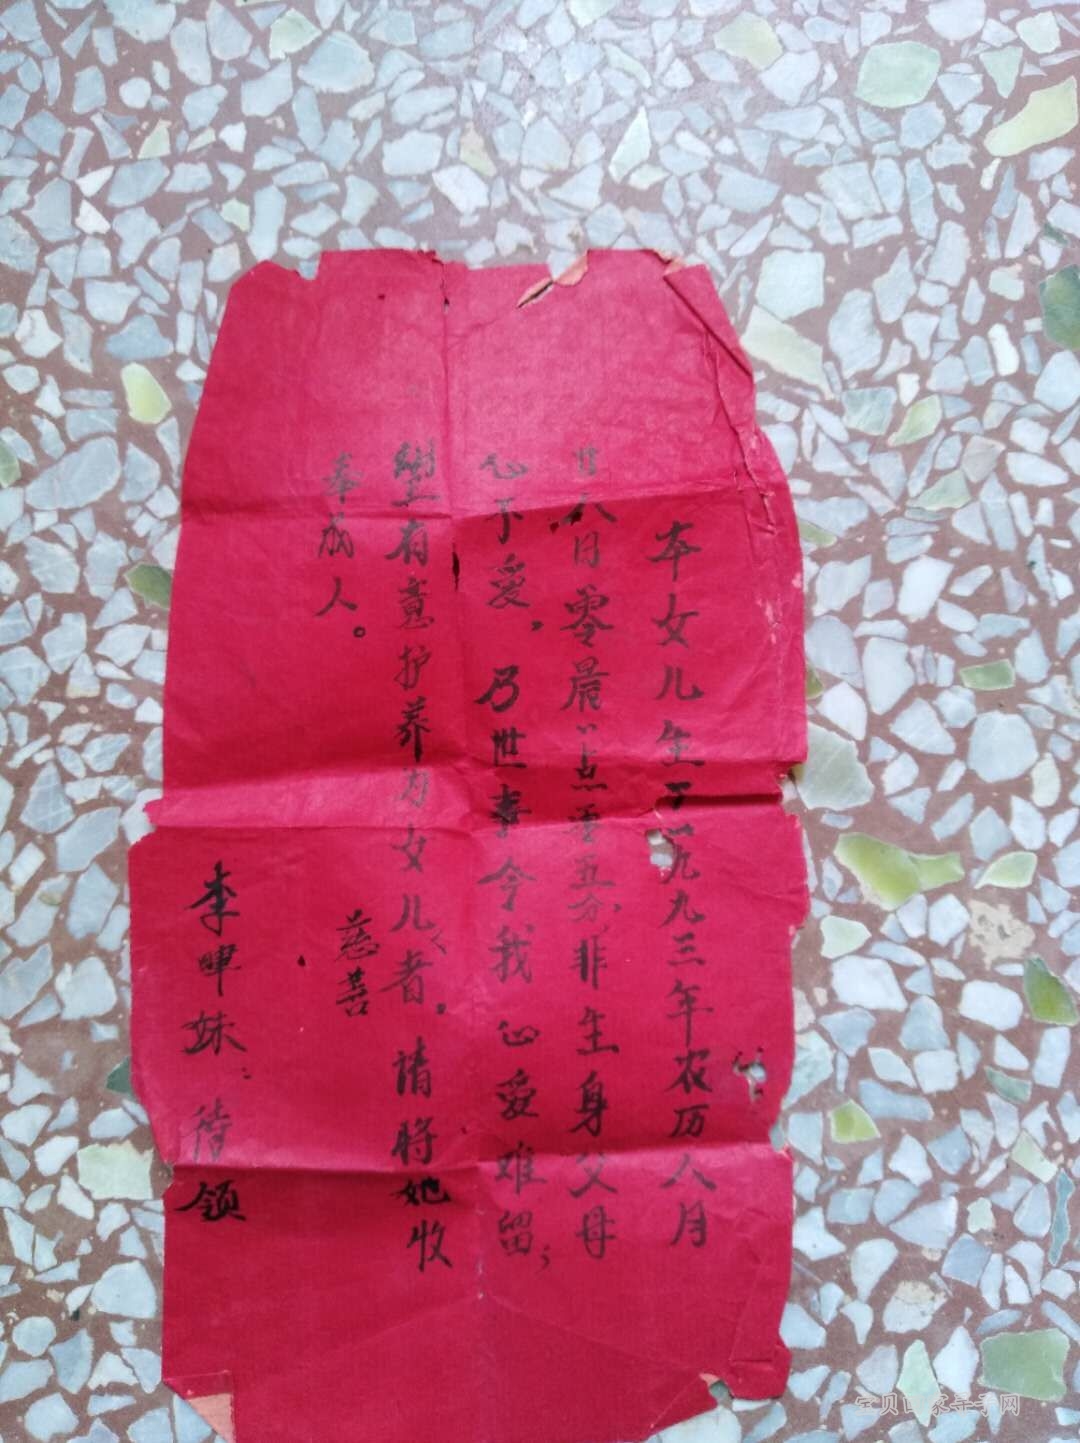 本女儿生于一九九三年农历八月
廿八日零晨一点零五分,非生身父母
心不爱,乃世事令我心爱难留;
望有意护养为女儿者。请将她收
奉成人。
慈善
李 妹 待领
宝贝回家寻子网